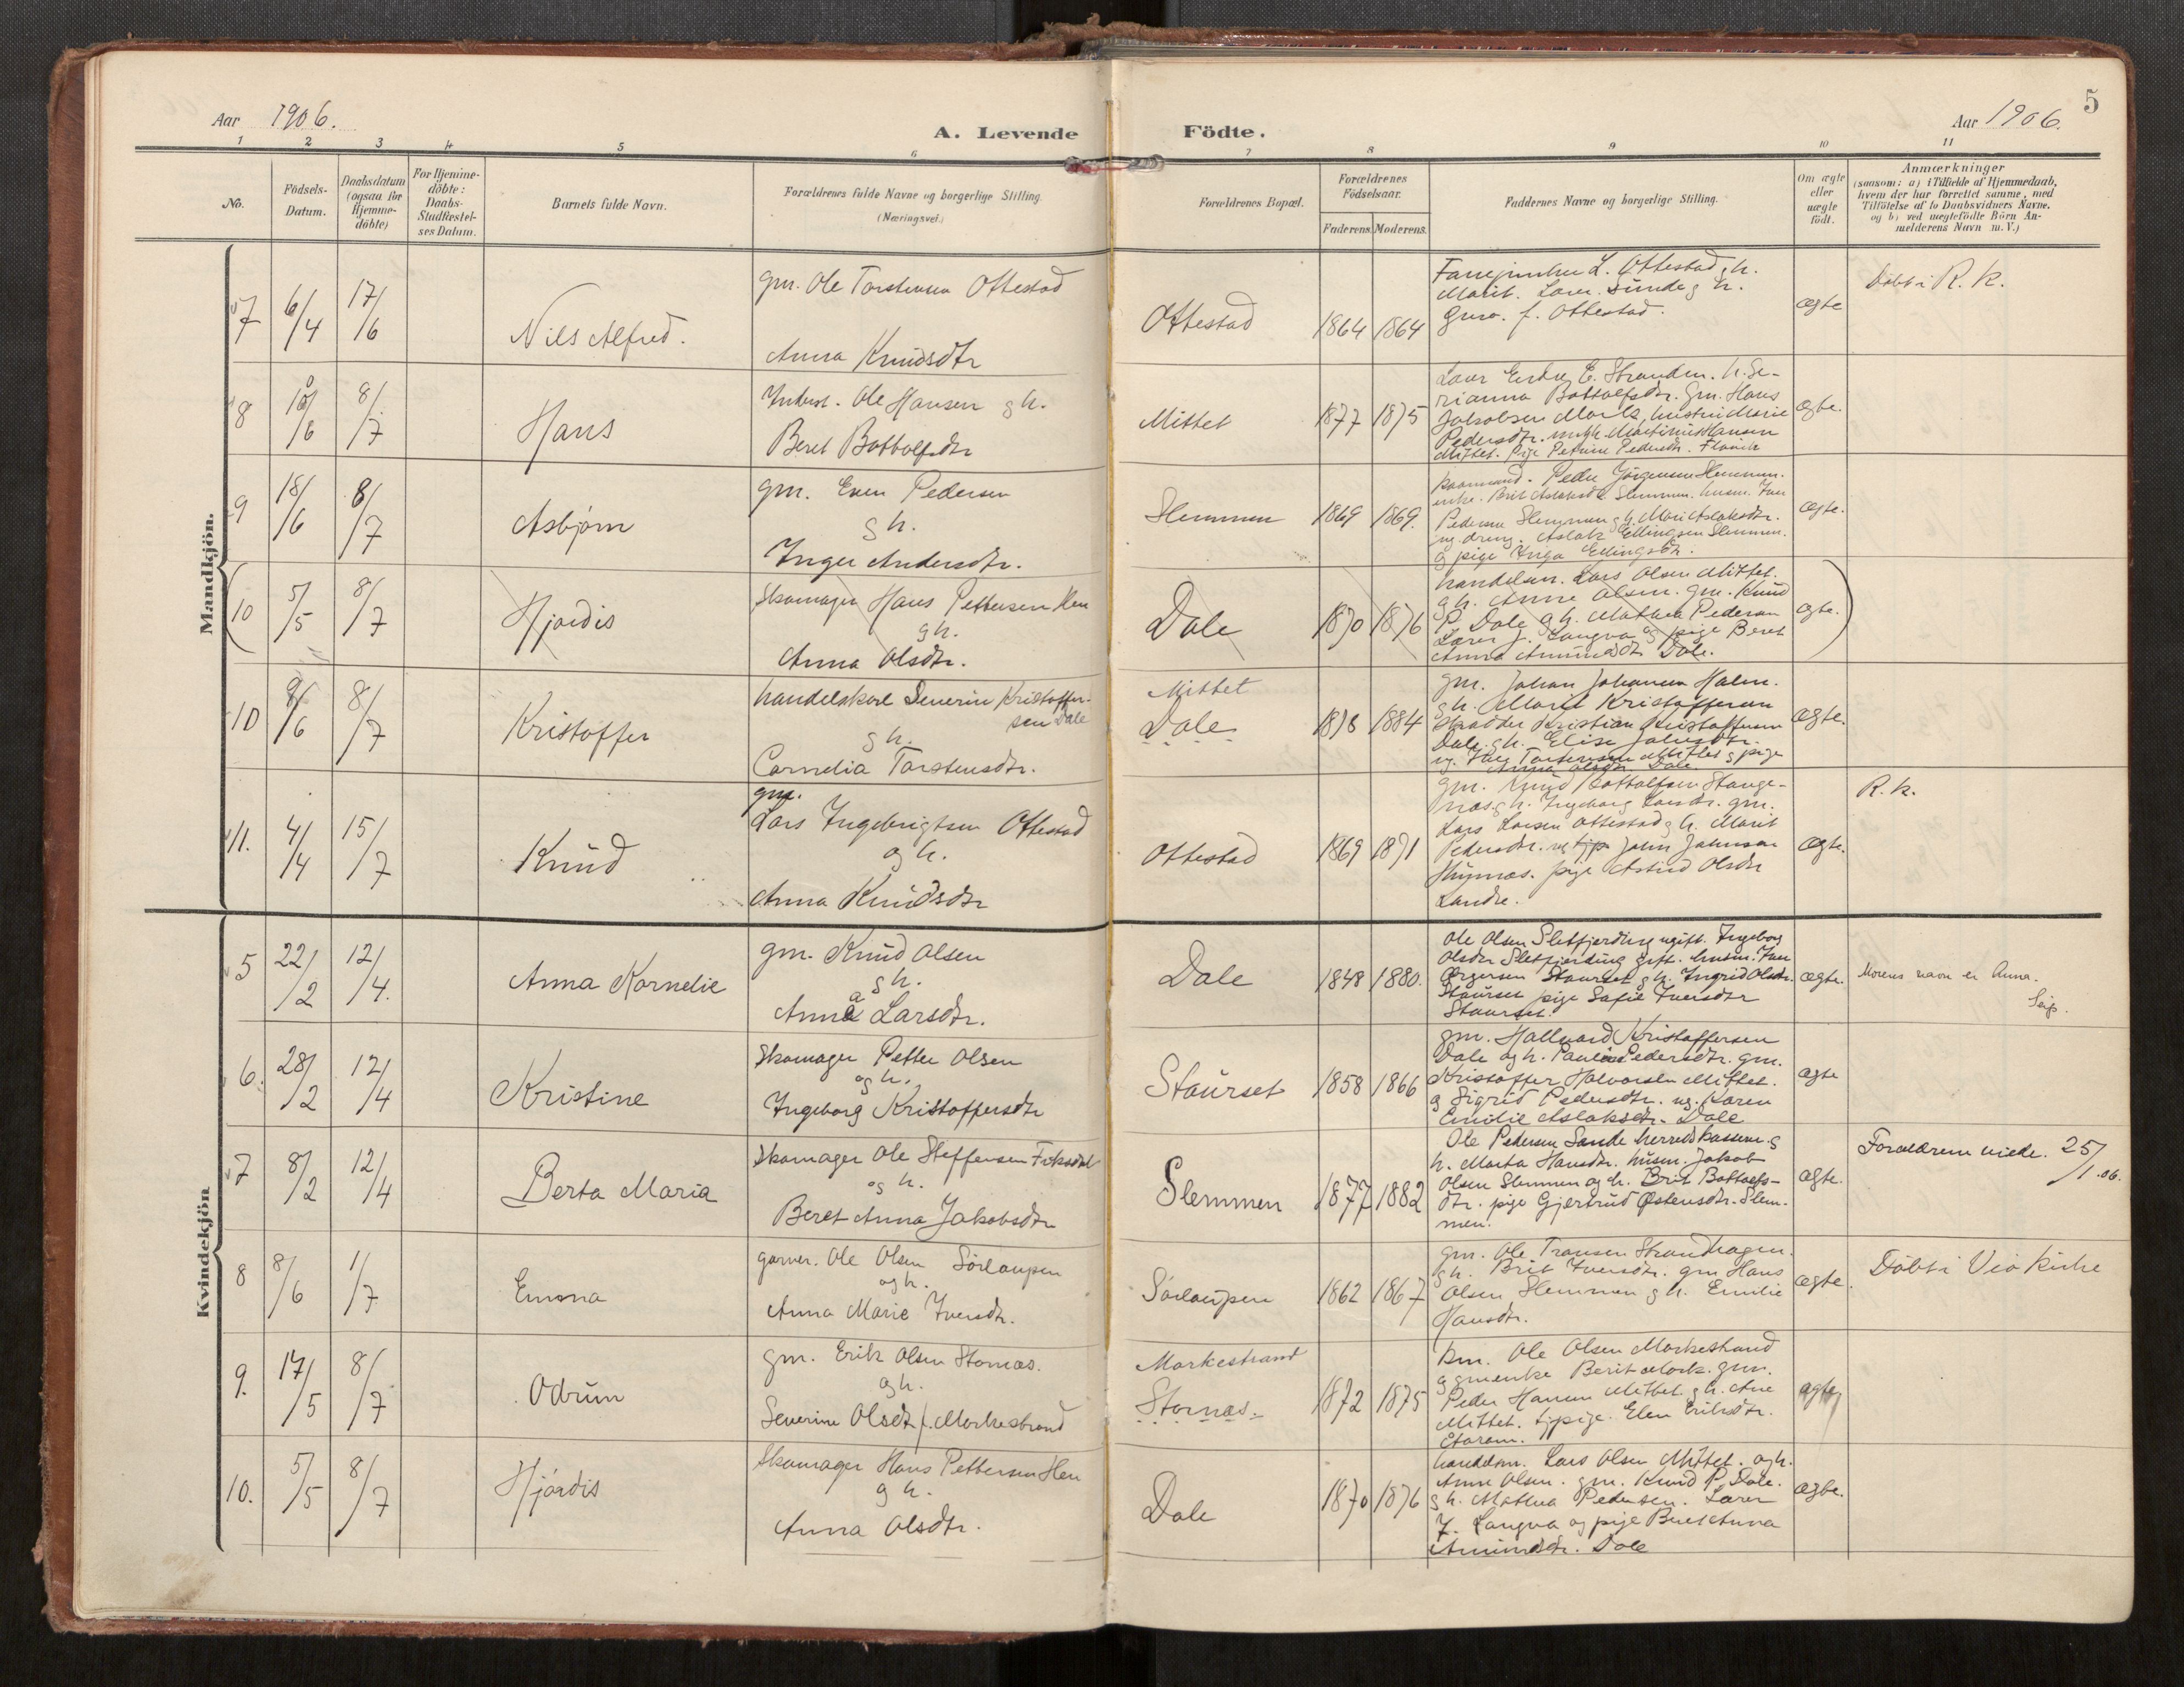 Aar 1906.
A. Levende Födte.
Aar 1906.
5
1 2 3 4 5 6 7 8 9 10 11
No.
Födsels-
Datum.
Daabsdatum
(ogsaa for
Hjemme-
döbte)
For Hjemme-
döbte:
Daabs-
Stadfæstel-
ses Datum.
Barnets fulde Navn.
Forældrenes fulde Navne og borgerlige Stilling.
(Næringsvei.)
Forældrenes Bopæl.
Forældrenes
Födselsaar.
Faderens. Moderens.
Faddernes Navne og borgerlige Stilling.
Om ægte
eller
uægte
födt.
Anmærkninger
(saasom: a) i Tilfælde af Hjemmedaab,
hvem der har forrettet samme, med
Tilföielse af to Daabsvidners Navne.
og b) ved uægtefödte Börn An-
melderens Navn m. V.)
Mandkjön.
7 6/4 17/6
Nils Alfred.
gm. Ole Torstensen Ottestad
Anna Knudsdtr
Ottestad 1864 1864
L. Ottestad g h.
Marit. Lærer Sunde g h.
f. Ottestad.
ægte
Döbt i R. k.
8 /6 8/7
Hans
Ole Hansen g h.
Beret Bottolfsdtr
Mittet 1877 1875
Lærer E. Stranden. h. Se-
rianna Bottolfsdtr. Gm. Hans
Jakobsen Mork, hustru Marie
Pedersdtr. Martinus Hansen
Mittet. Pige Petrine Pedersdtr.
ægte.
9 18/6 8/7
Asbjørn
gm. Even Pedersen
g h.
Inger Andersdtr.
Slemmen 1869 1869.
Peder Jörgensen Slemmen.
enke. Brit Aslaksdtr. Slemmen. husm. Iver
Pedersen Slemmen g h. Mari Aslaksdtr.
ug. dreng. Aslak Ellingsen Slemmen.
g pige Inga Ellingsdtr.
ægte.
(10 5/5 8/7
Hjørdis
Skomager Hans Pettersen Hen
g h.
Anna Olsdtr.
Dale 1870 1876
handelsm. Lars Olsen Mittet.
g h. Anne Olsen. gm. Knud
P. Dale g h. Mathea Pedersen
Lærer J. Langva og pige Beret
Anna Amundsdtr Dale.
ægte. )
10 /6 8/7
Kristoffer
handelskarl Severin Kristoffer-
sen Dale
g h.
Cornelia Torstensdtr.
Mittet
Dale 1878 1884
gm. Johan Johansen Holm.
g h. Marit Kristoffersen
Skrædder Kristian Kristoffersen
Dale g h. Elise
ug. Torstensen Mittet g pige
Anna Olsdtr. Dale
ægte.
11. 4/4 15/7
Knud
gm.
Lars Ingebrigtsen Ottestad
og h.
Anna Knudsdtr
Ottestad 1869 1871
gm. Knud Bottolfsen Stange-
næs. g h. Ingeborg Larsdtr. gm.
Lars Larsen Ottestad g h. Marit
Pedersdtr. ug tjp John Johnsen
pige Astrid Olsdtr
Landre.
ægte.
R. k.
Kvindekjön
5 22/2 12/4.
Anna Kornelie
gm. Knud Olsen
g h.
Anna Larsdtr.
Dale 1848 1880.
Ole Olsen Sletfjerding ugift. Ingeborg
Olsdtr Sletfjerding gift. husm. Iver
Staurset g h. Ingrid Olsdtr.
Staurset pige Sofie Iversdtr
Staurset.
ægte.
Morens navn er Anna.
6. 28/2 12/4
Kristine
Skomager Petter Olsen
og h.
Ingeborg Kristoffersdtr
Staurset 1858 1866
gm. Hallvard Kristoffersen
Dale og h. Pedersdtr. gm.
Kristoffer Halvorsen Mittet.
g Sigrid Pedersdtr. ug. Karen
Emilie Aslaksdtr. Dale
ægte
7 8/2 12/4
Berta Maria
Skomager Ole Steffensen Fiksdal
og h.
Beret Anna Jakobsdtr
Slemmen 1877 1882
Ole Pedersen Sande herredskasserer. g
h. Marta Hansdtr. husm. Jakob
Olsen Slemmen og h. Brit Bottolfs-
dtr. pige Gjertrud Østensdtr. Slem-
men.
ægte.
Forældrene viede. 25/1.06.
8 8/6 1/7
Emma
garver. Ole Olsen Sörlaupen
og h.
Anna Marie Iversdtr.
Sörlaupen 1862 1867
gm. Ole Tronsen Strandhagen.
g h. Brit Iversdtr. gm Hans
Olsen Slemmen g h. Emilie
Hansdtr.
ægte.
Döbt i Veö Kirke
9. 17/5 8/7
Odrun
gm. Erik Olsen Stornæs.
og h.
Severine Olsdtr f. Morkestrand
Morkestrand
Stornæs. 1872 1875
km. Ole Olsen Morkestrand
g gmenke Berit Mork. gm.
Peder Hansen Mittet g h. Ane
Mittet. tjpige. Elen Eriksdtr.
ægte
10. 5/5 8/7
Hjördis
Skomager Hans Pettersen Hen
g h.
Anna Olsdtr.
Dale 1870 1876
handelsm. Lars Olsen Mittet. og h.
Anne Olsen. gm. Knud P. Dale.
g h. Mathea Pedersen. Lærer
J. Langva og pige Beret Anna
Amundsdtr. Dale
ægte.